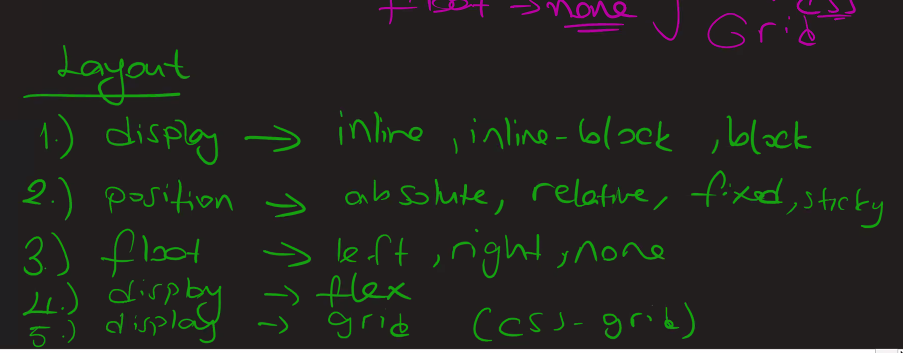 float → none (css)
Grid
Layout
1.) display → inline, inline-block, block
2.) position → absolute, relative, fixed, sticky
3.) float → left, right, none
4.) display → flex
5.) display → grid (css-grid)